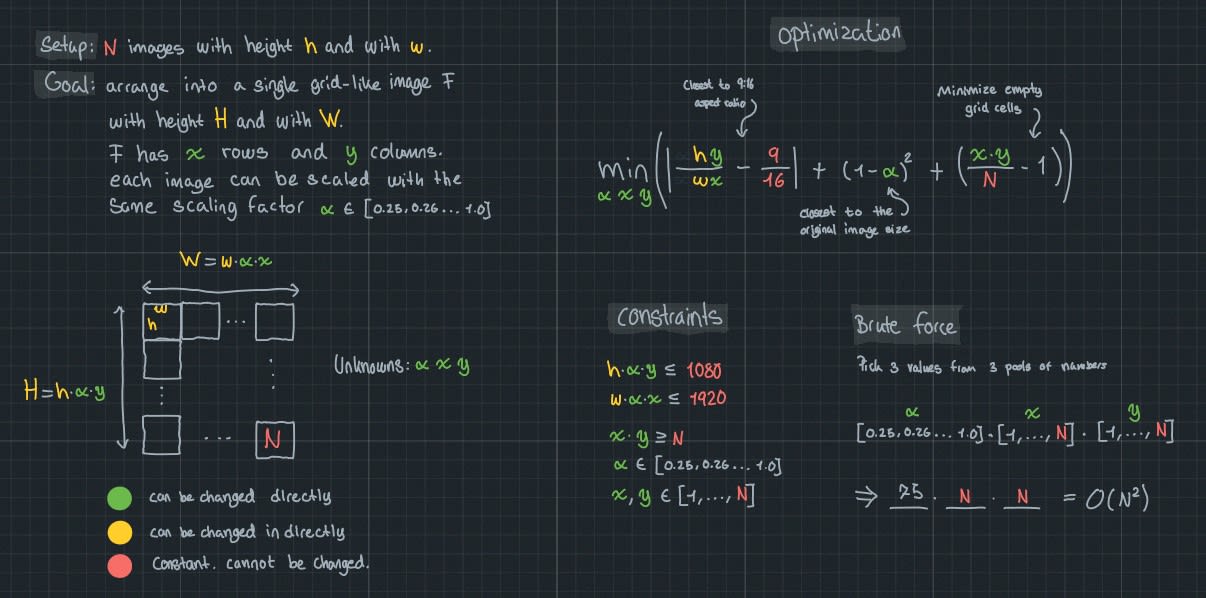 Setup: N images with height h and with w.
Goal: arrange into a single grid-like image I
with height H and with W.
I has x rows and y columns.
each image can be scaled with the
same scaling factor α ∈ [0.25, 0.26 ... 1.0]
W = w·α·x
w
h
...
H = h·α·y
...
N
Unknowns: α x y
can be changed directly
can be changed in directly
Constant. cannot be changed.
Optimization
Closest to 9:16
aspect ratio
Minimize empty
grid cells
min α x y ( | hy/wx - 9/16 | + (1-α)² + ( x·y/N - 1 ) )
closest to the
original image size
Constraints
h·α·y ≤ 1080
w·α·x ≤ 1920
x·y ≥ N
α ∈ [0.25, 0.26 ... 1.0]
x, y ∈ [1, ..., N]
Brute force
Pick 3 values from 3 pools of numbers
α x y
[0.25, 0.26 ... 1.0] · [1, ..., N] · [1, ..., N]
⇒ 75 · N · N = O(N²)